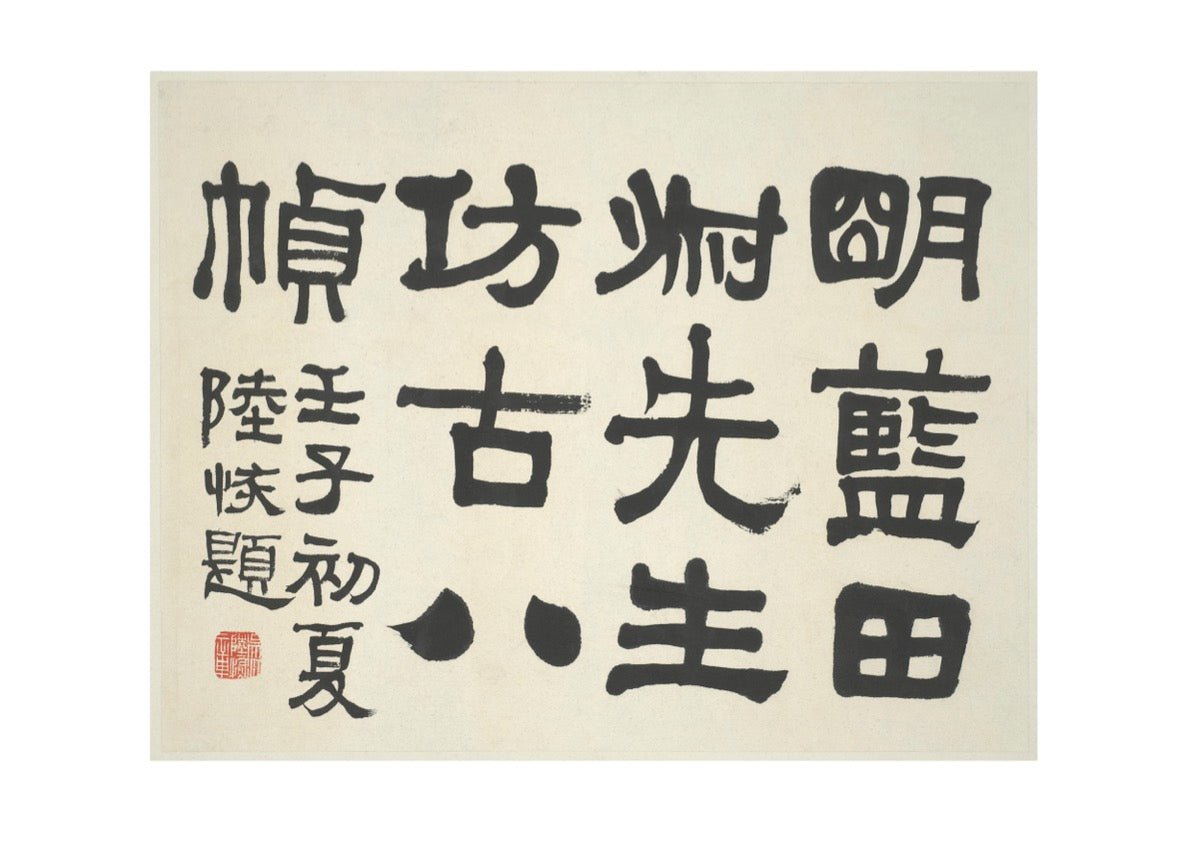 明藍田
叔先生
仿古八
幀
壬子初夏
陸恢題